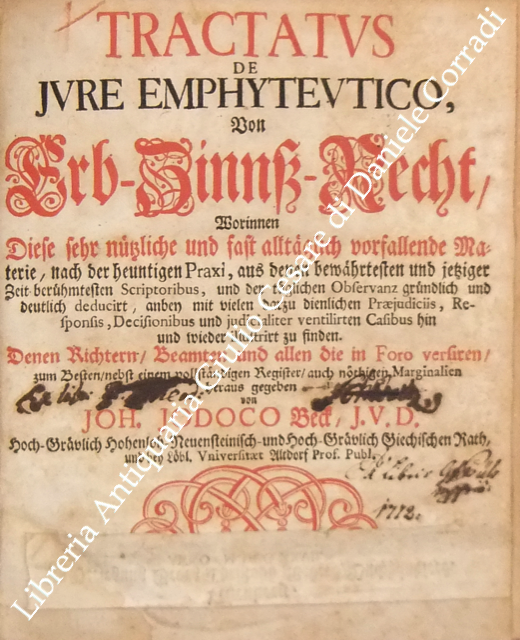 TRACTATVS
DE
JVRE EMPHYTEVTICO,
Von
Erb-Zinnß-Recht/
Worinnen
Diese sehr nützliche und fast alltäglich vorfallende Ma-
terie/ nach der heuntigen Praxi, aus denen bewährtesten und jetziger
Zeit berühmtesten Scriptoribus, und der täglichen Observanz gründlich und
deutlich deducirt, anbey mit vielen darzu dienlichen Præjudiciis, Re-
sponsis, Decisionibus und judicialiter ventilirten Casibus hin
und wieder illustrirt zu finden.
Denen Richtern/ Beamten und allen die in Foro versiren/
zum Besten/ nebst einem vollständigen Register/ auch nöthigen Marginalien
heraus gegeben
von
JOH. JODOCO Beck, J.V.D.
Hoch-Grävlich Hohenloh-Neuensteinisch-und Hoch-Grävlich Giechischen Rath,
und bey Löbl. Vniversitæt Altdorf Prof. Publ.
Ex libris
1772.
Libreria Antiquaria Giulio Cesare di Daniele Corradi